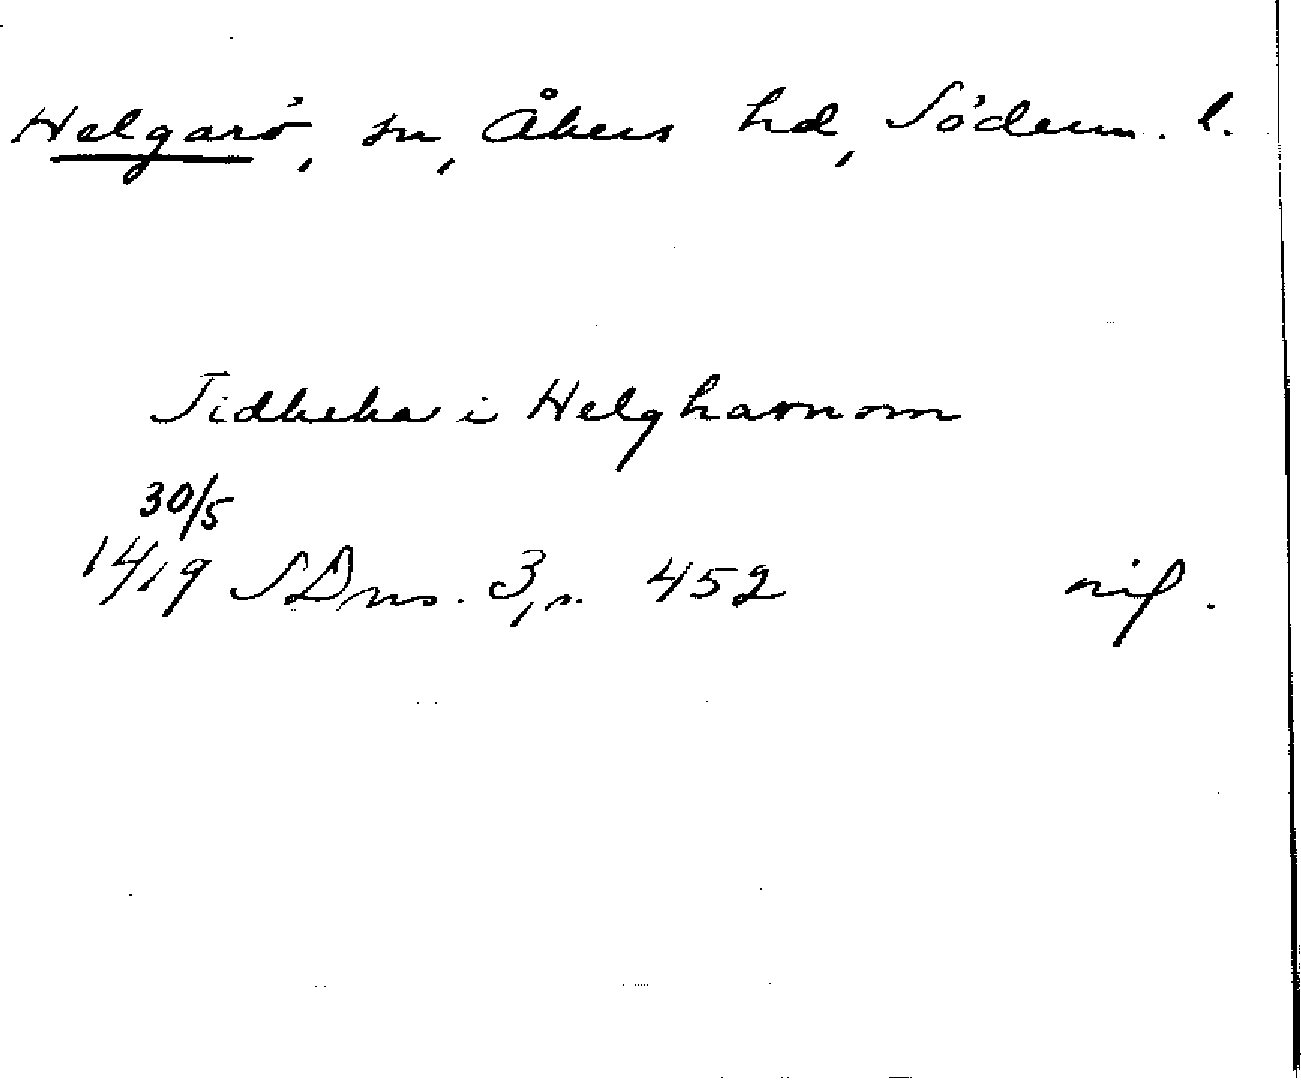 Helgarö, sn, Åkers hd, Söderm. l.
Tidheka i Helgharnom
30/5
1419 SDns. 3, s. 452